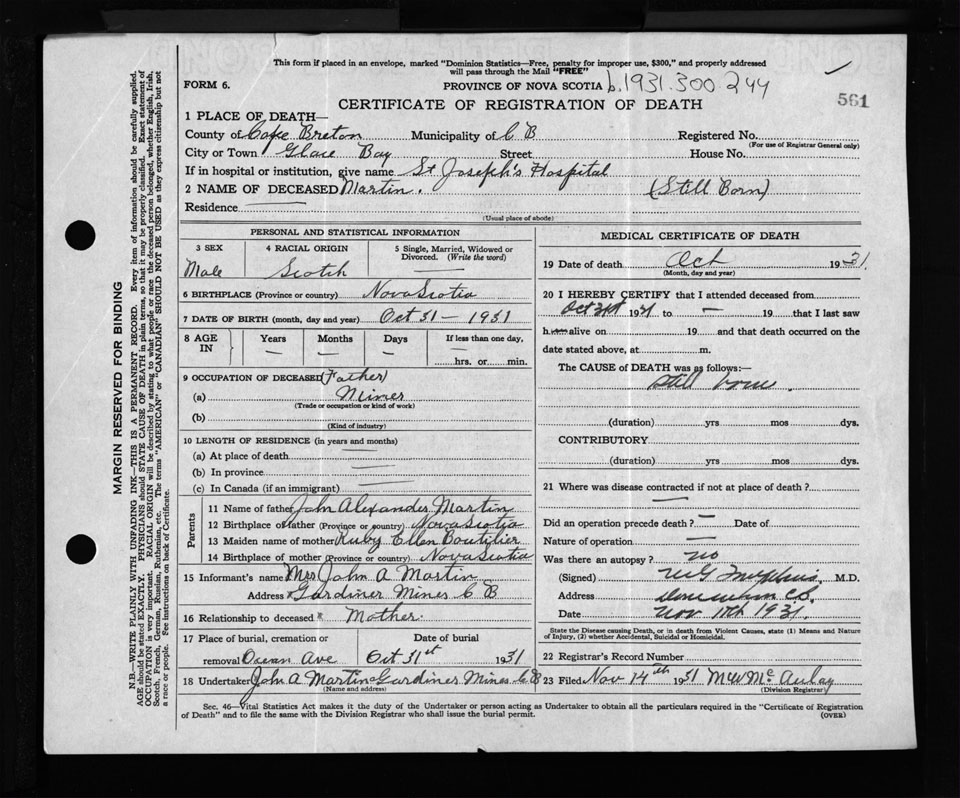 This form if placed in an envelope, marked "Dominion Statistics—Free, penalty for improper use, $300," and properly addressed
will pass through the Mail "FREE"
FORM 6.
PROVINCE OF NOVA SCOTIA b.1931.300 244
561
CERTIFICATE OF REGISTRATION OF DEATH
1 PLACE OF DEATH—
County of Cape Breton Municipality of C B Registered No.
(For use of Registrar General only)
City or Town Glace Bay Street House No.
If in hospital or institution, give name St Joseph's Hospital
2 NAME OF DECEASED Martin. (Still Born)
Residence
(Usual place of abode)
PERSONAL AND STATISTICAL INFORMATION
3 SEX 4 RACIAL ORIGIN 5 Single, Married, Widowed or
Divorced. (Write the word)
Male Scotch —
6 BIRTHPLACE (Province or country) Nova Scotia
7 DATE OF BIRTH (month, day and year) Oct 31 — 1931
8 AGE IN Years Months Days If less than one day,
— — — hrs. or min.
9 OCCUPATION OF DECEASED (Father)
(a) Miner
(Trade or occupation or kind of work)
(b)
(Kind of industry)
10 LENGTH OF RESIDENCE (in years and months)
(a) At place of death
(b) In province
(c) In Canada (if an immigrant)
Parents
11 Name of father John Alexander Martin
12 Birthplace of father (Province or country) Nova Scotia
13 Maiden name of mother Ruby Ellen Boutilier
14 Birthplace of mother (Province or country) Nova Scotia
15 Informant's name Mrs John A Martin
Address Gardiner Mines C B
16 Relationship to deceased Mother.
17 Place of burial, cremation or Date of burial
removal Ocean Ave Oct 31st 1931
18 Undertaker John A Martin Gardiner Mines C B
(Name and address)
MEDICAL CERTIFICATE OF DEATH
19 Date of death Oct 1931.
(Month, day and year)
20 I HEREBY CERTIFY that I attended deceased from
Oct 31st 1931 to — 19 that I last saw
h alive on 19 and that death occurred on the
date stated above, at m.
The CAUSE of DEATH was as follows:—
Still born.
(duration) yrs mos dys.
CONTRIBUTORY
(duration) yrs mos dys.
21 Where was disease contracted if not at place of death?
Did an operation precede death? — Date of
Nature of operation —
Was there an autopsy? no
(Signed) M.D.
Address C.B.
Date Nov 11th 1931
State the Disease causing Death, or in death from Violent Causes, state (1) Means and Nature
of Injury, (2) whether Accidental, Suicidal or Homicidal.
22 Registrar's Record Number
23 Filed Nov 14th 1931 McAulay
(Division Registrar)
Sec. 46—Vital Statistics Act makes it the duty of the Undertaker or person acting as Undertaker to obtain all the particulars required in the "Certificate of Registration
of Death" and to file the same with the Division Registrar who shall issue the burial permit.
(OVER)
MARGIN RESERVED FOR BINDING
N.B.—WRITE PLAINLY WITH UNFADING INK—THIS IS A PERMANENT RECORD. Every item of information should be carefully supplied.
AGE should be stated EXACTLY. PHYSICIANS should STATE CAUSE OF DEATH in plain terms, so that it may be properly classified. Exact statement of
OCCUPATION is very important. RACIAL ORIGIN will be described by stating to what people or race the deceased person belonged, whether English, Irish,
Scotch, French, German, Russian, Ruthenian, etc. The terms "AMERICAN" or "CANADIAN" SHOULD NOT BE USED as they express citizenship but not
a race or people. See instructions on back of Certificate.